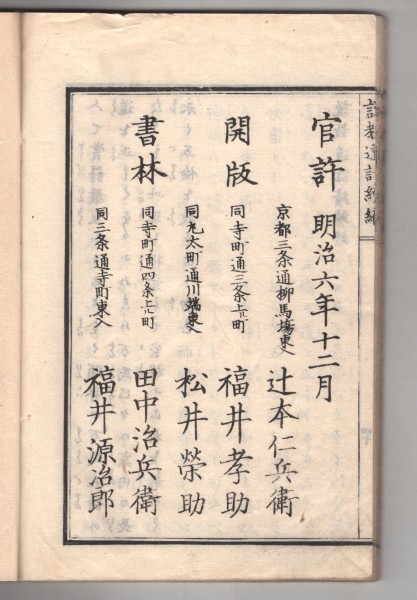 官許 明治六年十二月
京都三条通柳馬場東入 辻本仁兵衛
開版 同寺町通三条上ル町 福井孝助
同丸太町通川端東入 松井榮助
書林 同寺町通四条上ル町 田中治兵衛
同三条通寺町東入 福井源治郎